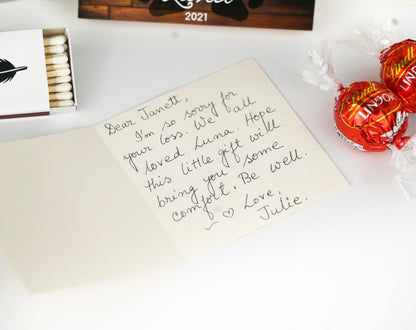 2021
Dear Janett,
I'm so sorry for
your loss. We all
loved Luna. Hope
this little gift will
bring you some
comfort. Be well.
Love,
Julie.
Lindt
LINDOR
Lindt